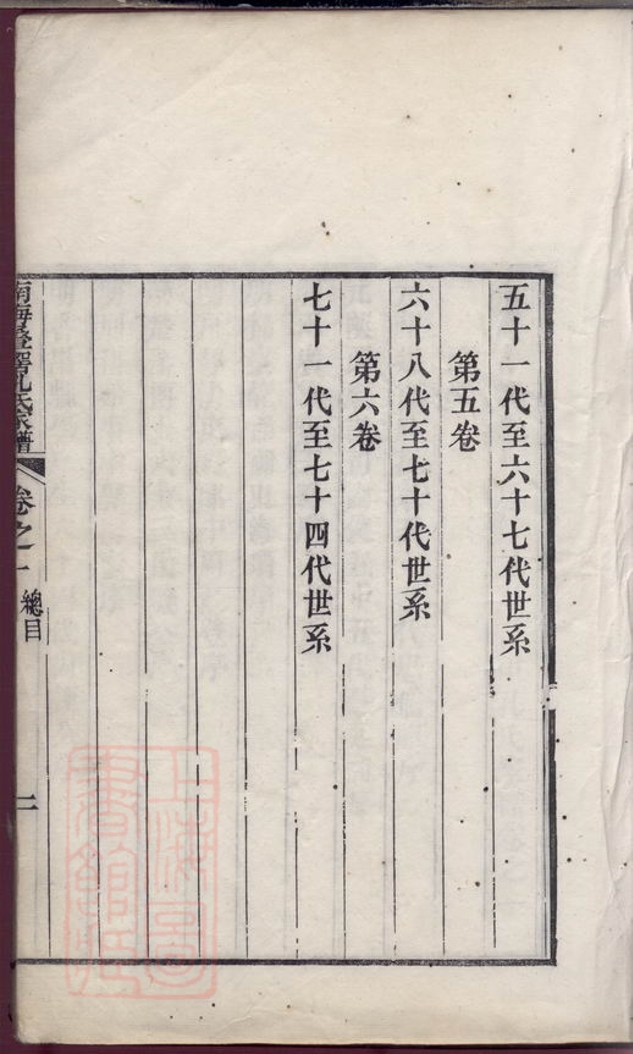 五十一代至六十七代世系
第五卷
六十八代至七十代世系
第六卷
七十一代至七十四代世系
南海疊滘孔氏家譜
卷之一
總目
二
上海圖
書館藏